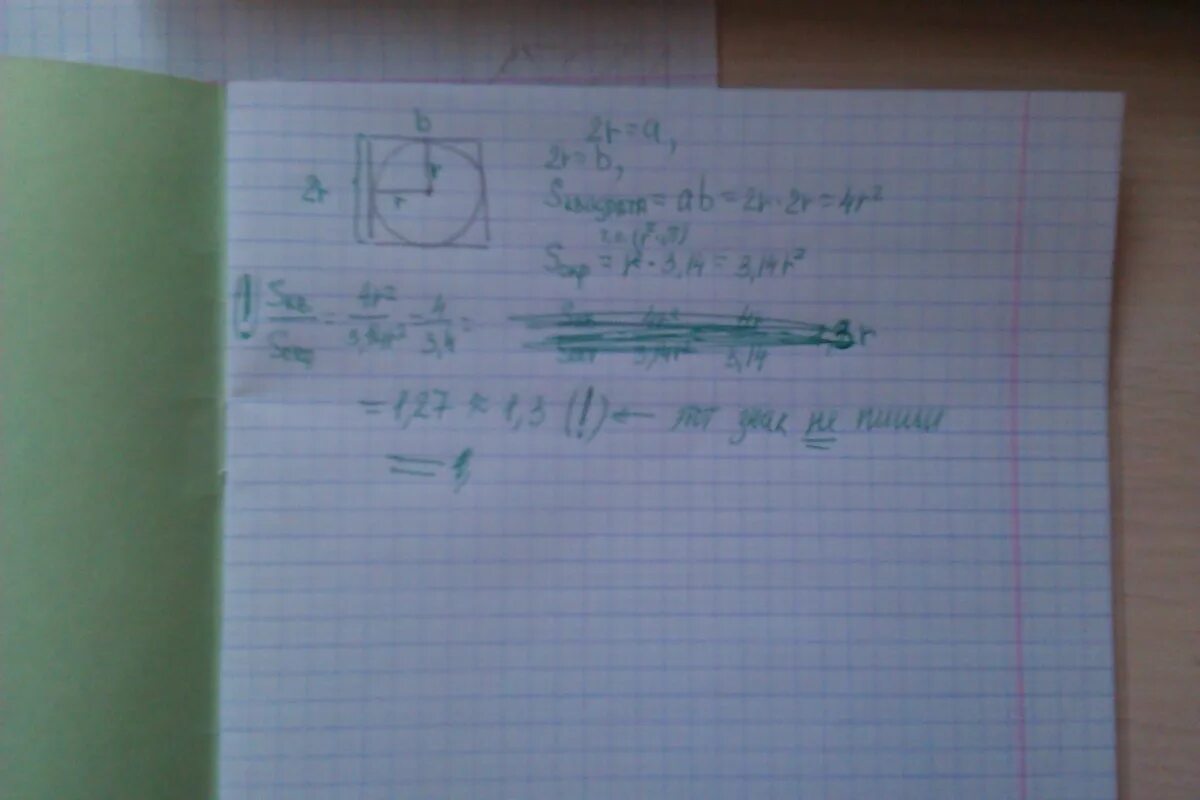 b
2r
r
r
2r = a,
2r = b,
Sквадрата = ab = 2r · 2r = 4r²
Sокр = r² · 3,14 = 3,14r²
! Sкв. = 4r² = 4 =
3,14r² 3,14
= 1,27 ≈ 1,3 (!) ← тот знак не пиши
= 1,